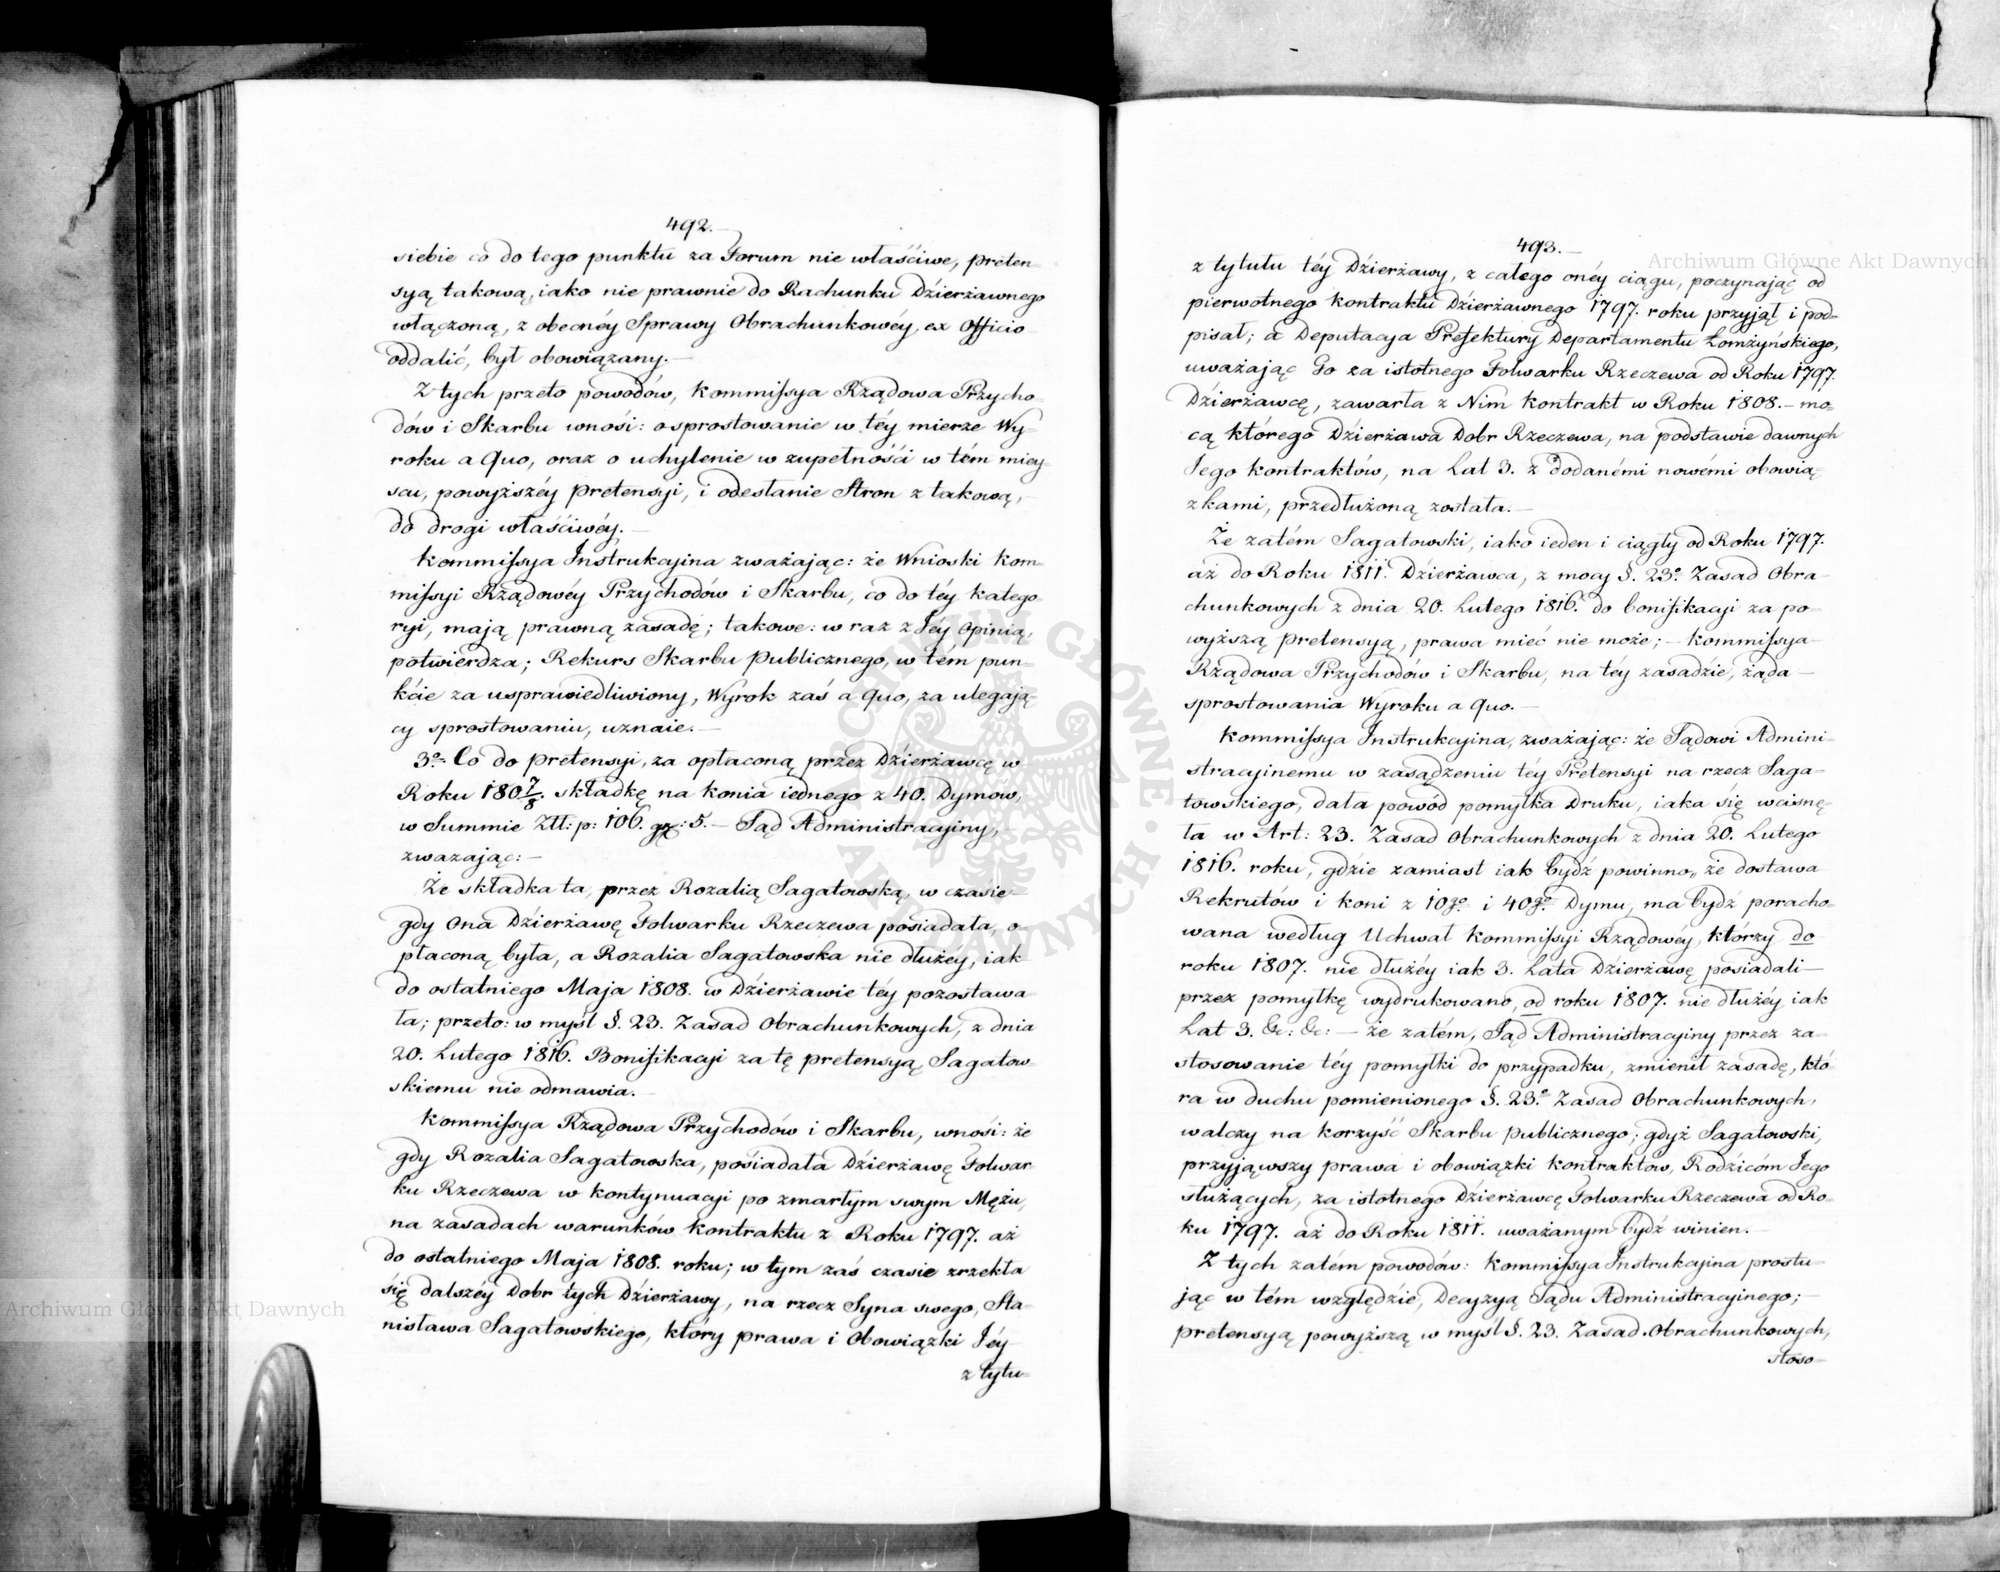 492.
siebie co do tego punktu za Forum nie właściwe, preten-
syą takową, iako nie prawnie do Rachunku Dzierżawnego
włączoną, z obecnéy Sprawy Obrachunkowéy, ex Officio
oddalić, był obowiązany.—
Z tych przeto powodów, Kommissya Rządowa Przycho-
dów i Skarbu wnosi: o sprostowanie w téy mierze Wy-
roku a Quo, oraz o uchylenie w zupełności w tém miey-
scu, powyższéy pretensyi, i odesłanie Stron z takową,
do drogi właściwéy.—
Kommissya Instrukcyina zważając: że Wnioski Kom-
missyi Rządowéy Przychodów i Skarbu, co do téy katego-
ryi, mają prawną zasadę; takowe: w raz z Jéy Opinią,
potwierdza; Rekurs Skarbu Publicznego, w tém pun-
kcie za usprawiedliwiony, Wyrok zaś a Quo, za ulegają-
cy sprostowaniu, uznaie.—
3º Co do pretensyi, za opłaconą przez Dzierżawcę w
Roku 1807/8. składkę na konia iednego z 40. Dymów,
w Summie Złł: p: 106. gr: 5.— Sąd Administracyiny,
zważając:—
Że składka ta, przez Rozalią Sagatowską, w czasie
gdy Ona Dzierżawę Folwarku Rzeczewa posiadała, o-
płaconą była, a Rozalia Sagatowska nie dłużéy, iak
do ostatniego Maja 1808. w Dzierżawie téy pozostawa-
ła; przeto: w myśl §. 23. Zasad Obrachunkowych, z dnia
20. Lutego 1816. Bonifikacyi za tę pretensyą Sagatow-
skiemu nie odmawia.—
Kommissya Rządowa Przychodów i Skarbu, wnosi: że
gdy Rozalia Sagatowska, posiadała Dzierżawę Folwar-
ku Rzeczewa w kontynuacyi po zmarłym swym Mężu,
na zasadach warunków kontraktu z Roku 1797. aż
do ostatniego Maja 1808. roku; w tym zaś czasie zrzekła
się dalszéy Dobr tych Dzierżawy, na rzecz Syna swego, Sta-
nisława Sagatowskiego, który prawa i Obowiązki Jéy
z tytu-
493.—
z tytułu téy Dzierżawy, z całego onéy ciągu, poczynając od
pierwotnego kontraktu Dzierżawnego 1797. roku przyjął i pod-
pisał; a Deputacya Prefektury Departamentu Łomżyńskiego,
uważając Go za istotnego Folwarku Rzeczewa od Roku 1797.
Dzierżawcę, zawarła z Nim kontrakt w Roku 1808.— mo-
cą którego Dzierżawa Dobr Rzeczewa, na podstawie dawnych
Jego kontraktów, na Lat 3. z dodanémi nowémi obowią-
zkami, przedłużoną została.—
Że zatém Sagatowski, iako ieden i ciągły od Roku 1797.
aż do Roku 1811. Dzierżawca, z mocy §. 23º Zasad Obra-
chunkowych z dnia 20. Lutego 1816. do bonifikacyi za po-
wyższą pretensyą, prawa mieć nie może;— Kommissya
Rządowa Przychodów i Skarbu, na téy zasadzie, żąda—
sprostowania Wyroku a Quo.—
Kommissya Instrukcyina, zważając: że Sądowi Admini-
stracyinemu w zasądzeniu téy Pretensyi na rzecz Saga-
towskiego, dała powód pomyłka Druku, iaka się wcisnę-
ła w Art: 23. Zasad Obrachunkowych z dnia 20. Lutego
1816. roku, gdzie zamiast iak bydź powinno„ że dostawa
Rekrutów i koni z 10go i 40go Dymu, ma bydź poracho-
wana według Uchwał Kommissyi Rządowéy, którzy do
roku 1807. nie dłużéy iak 3. Lata Dzierżawę posiadali—
przez pomyłkę wydrukowano, od roku 1807. nie dłużéy iak
Lat 3. &c: &c: — że zatém, Sąd Administracyiny przez za-
stosowanie téy pomyłki do przypadku, zmienił zasadę, któ-
ra w duchu pomienionego §. 23º Zasad Obrachunkowych,
walczy na korzyść Skarbu Publicznego; gdyż Sagatowski,
przyjąwszy prawa i obowiązki kontraktow, Rodzicóm Jego
służących, za istotnego Dzierżawcę Folwarku Rzeczewa od Ro-
ku 1797. aż do Roku 1811. uważanym bydź winien.—
Z tych zatém powodów: Kommissya Instrukcyina prostu-
jąc w tém względzie, Decyzyą Sądu Administracyinego;—
pretensyą powyższą w myśl §. 23. Zasad Obrachunkowych,
stoso-
Archiwum Główne Akt Dawnych
Archiwum Główne Akt Dawnych
ARCHIWUM GŁÓWNE AKT DAWNYCH